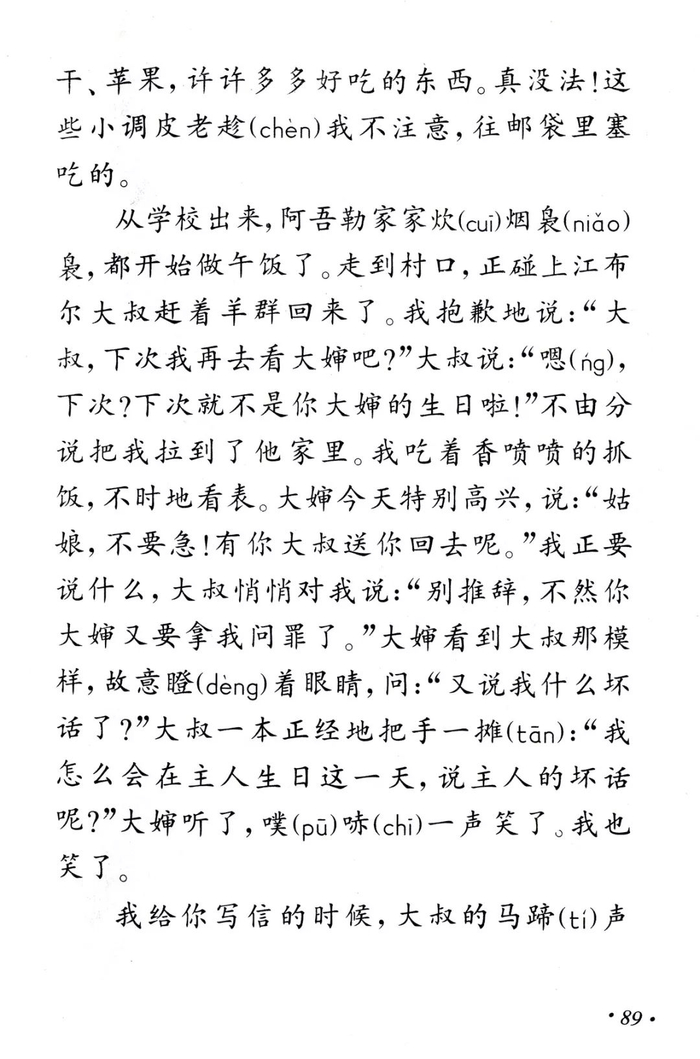 干、苹果，许许多多好吃的东西。真没法！这
些小调皮老趁(chèn)我不注意，往邮袋里塞
吃的。
从学校出来，阿吾勒家家炊(cuī)烟袅(niǎo)
袅，都开始做午饭了。走到村口，正碰上江布
尔大叔赶着羊群回来了。我抱歉地说：“大
叔，下次我再去看大婶吧？”大叔说：“嗯(ńg)，
下次？下次就不是你大婶的生日啦！”不由分
说把我拉到了他家里。我吃着香喷喷的抓
饭，不时地看表。大婶今天特别高兴，说：“姑
娘，不要急！有你大叔送你回去呢。”我正要
说什么，大叔悄悄对我说：“别推辞，不然你
大婶又要拿我问罪了。”大婶看到大叔那模
样，故意瞪(dèng)着眼睛，问：“又说我什么坏
话了？”大叔一本正经地把手一摊(tān)：“我
怎么会在主人生日这一天，说主人的坏话
呢？”大婶听了，噗(pū)哧(chī)一声笑了。我也
笑了。
我给你写信的时候，大叔的马蹄(tí)声
·89·